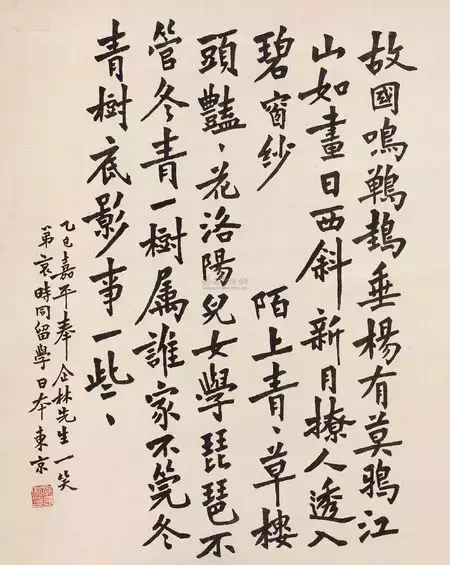 故國鳴鵜垂楊有莫鴉江
山如畫日西斜新月撩人透入
碧窗紗 陌上青、草樓
頭豔、花洛陽兒女學琵琶不
管冬青一樹属誰家不筦冬
青樹底影事一些、
乙巳嘉平奉 企林先生一笑
弟哀時同留學日本東京